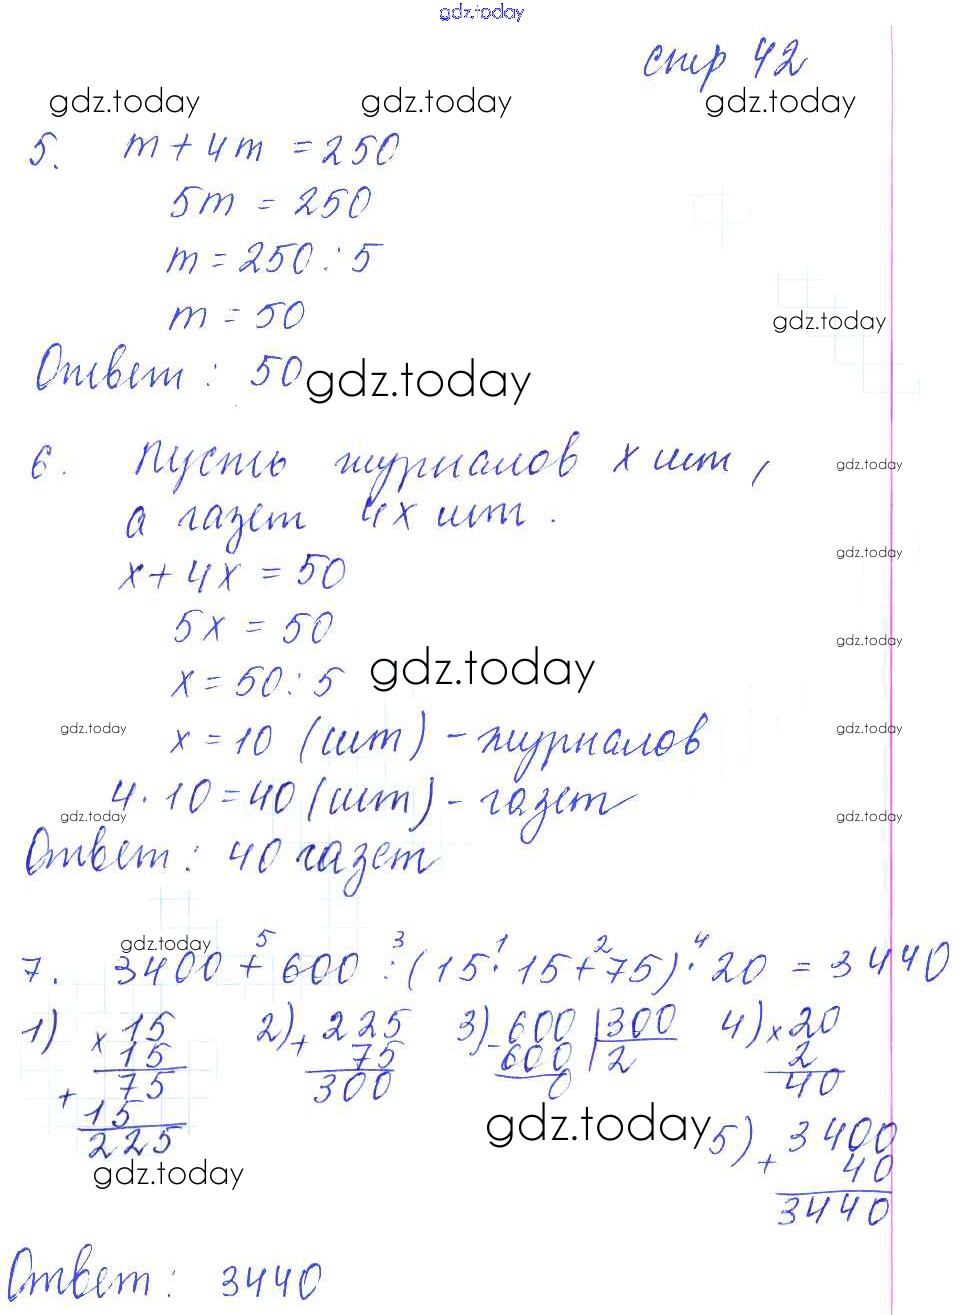 gdz.today
стр 42
gdz.today gdz.today gdz.today
5. m + 4m = 250
5m = 250
m = 250 : 5
m = 50
gdz.today
Ответ : 50
gdz.today
6. Пусть журналов x шт ,
gdz.today
а газет 4x шт .
gdz.today
x + 4x = 50
5x = 50
gdz.today
x = 50 : 5
gdz.today
gdz.today
x = 10 (шт) - журналов
gdz.today
4 · 10 = 40 (шт) - газет
gdz.today
gdz.today
Ответ : 40 газет
gdz.today
5 3 1 2 4
7. 3400 + 600 : (15 · 15 + 75) · 20 = 3440
1) × 15 2) + 225 3) - 600 | 300 4) × 20
15 75 600 | 2 2
+ 75 300 0 40
15
225
gdz.today
5) + 3400
40
3440
gdz.today
Ответ : 3440